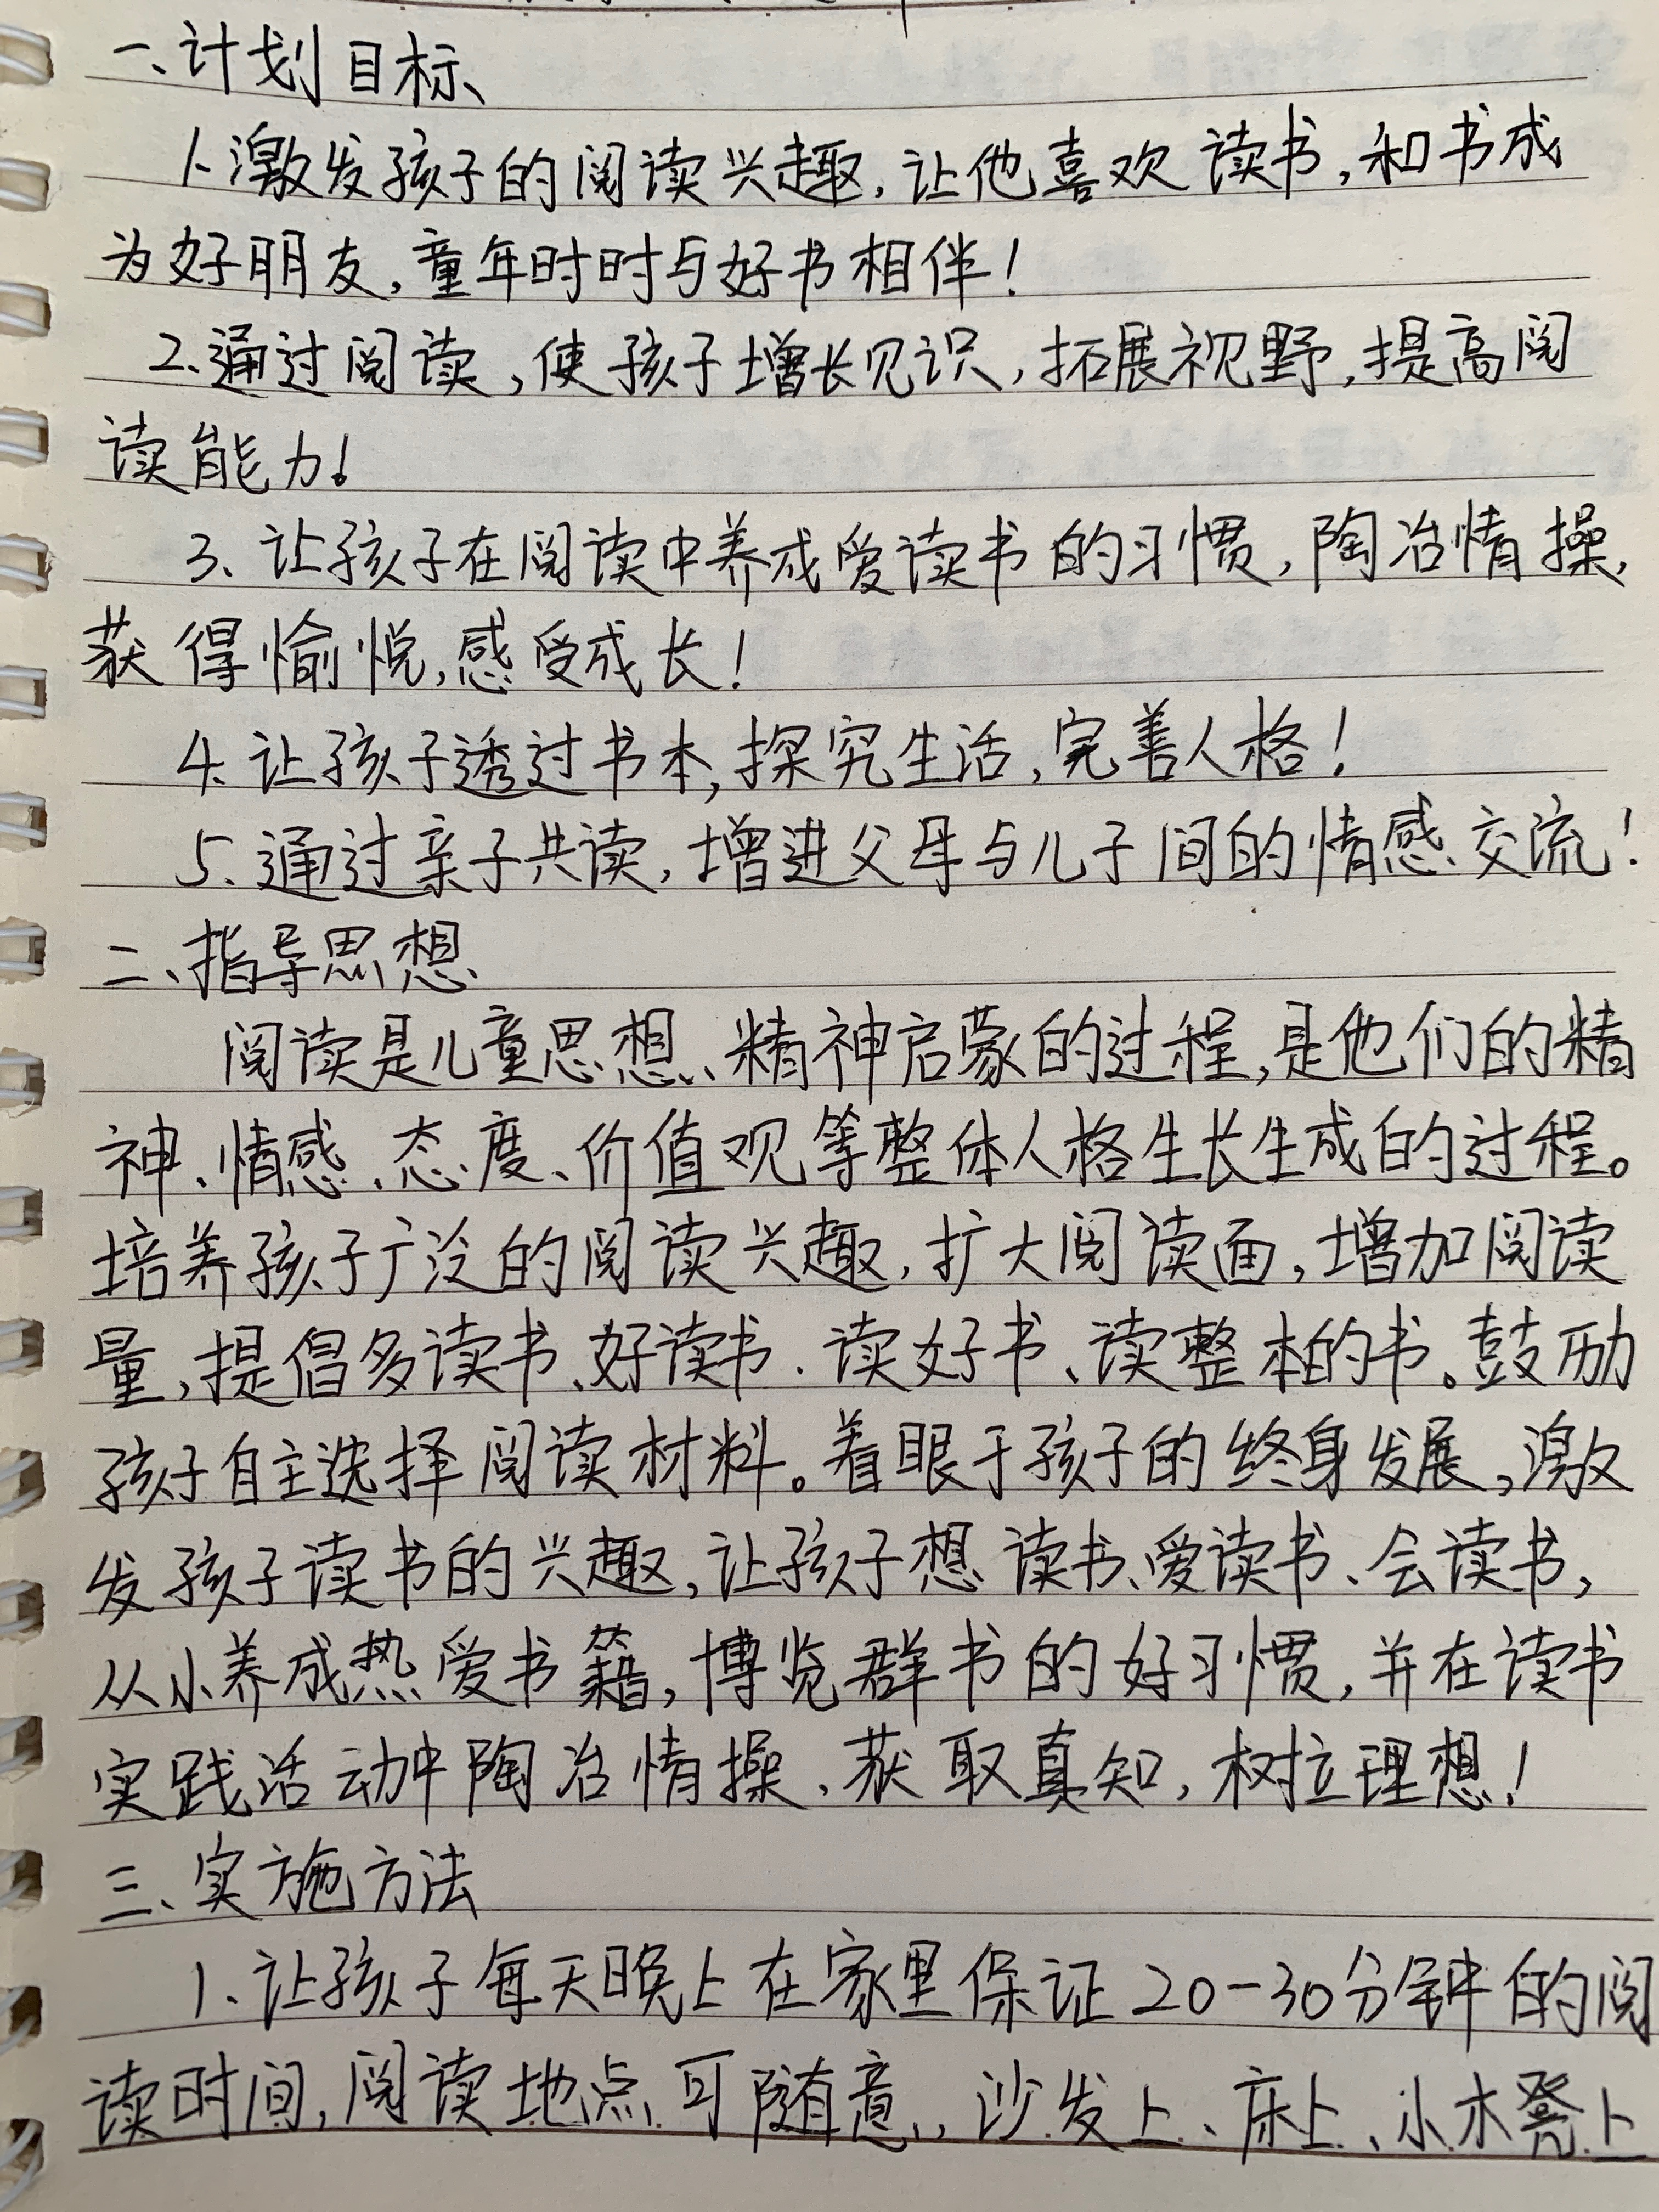 一、计划目标
1、激发孩子的阅读兴趣,让他喜欢读书,和书成
为好朋友,童年时时与好书相伴!
2、通过阅读,使孩子增长见识,拓展视野,提高阅
读能力!
3、让孩子在阅读中养成爱读书的习惯,陶冶情操,
获得愉悦,感受成长!
4、让孩子透过书本,探究生活,完善人格!
5、通过亲子共读,增进父母与儿子间的情感交流!
二、指导思想
阅读是儿童思想、精神启蒙的过程,是他们的精
神、情感、态度、价值观等整体人格生长生成的过程。
培养孩子广泛的阅读兴趣,扩大阅读面,增加阅读
量,提倡多读书、好读书、读好书、读整本的书。鼓励
孩子自主选择阅读材料。着眼于孩子的终身发展,激
发孩子读书的兴趣,让孩子想读书、爱读书、会读书,
从小养成热爱书籍,博览群书的好习惯,并在读书
实践活动中陶冶情操、获取真知,树立理想!
三、实施方法
1、让孩子每天晚上在家里保证20-30分钟的阅
读时间,阅读地点可随意,沙发上、床上、小木凳上